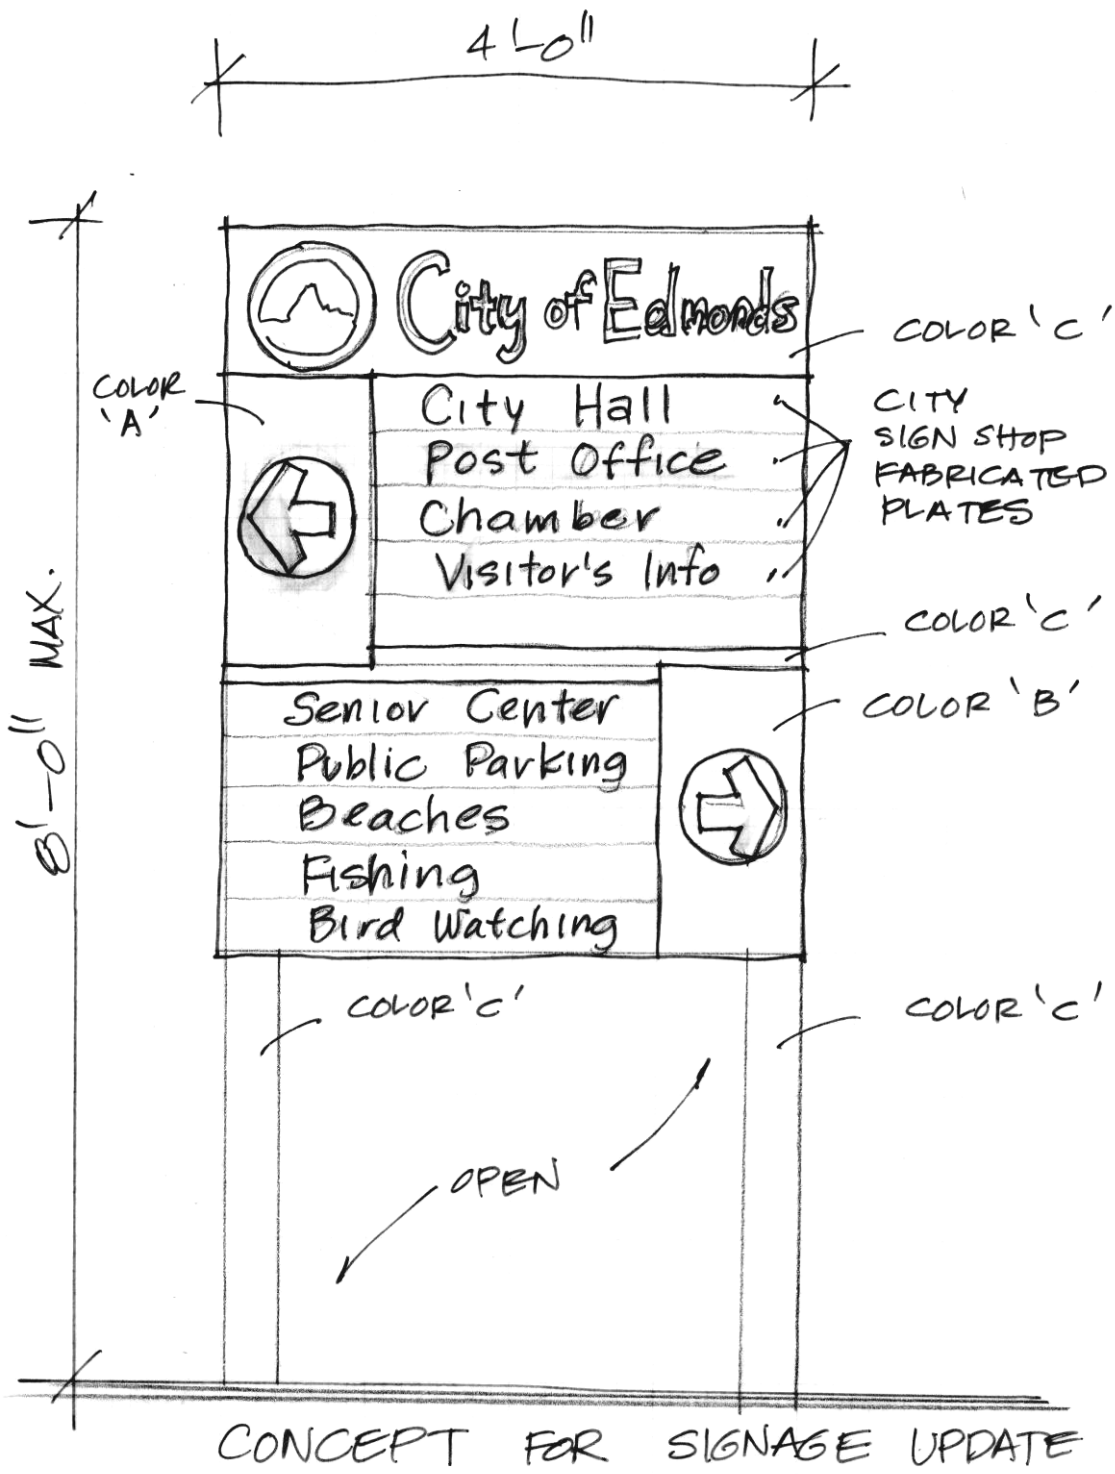 4'-0"
City of Edmonds
COLOR 'C'
COLOR
'A'
City Hall
Post Office
Chamber
Visitor's Info
CITY
SIGN SHOP
FABRICATED
PLATES
COLOR 'C'
8'-0" MAX.
Senior Center
Public Parking
Beaches
Fishing
Bird Watching
COLOR 'B'
COLOR 'C'
COLOR 'C'
OPEN
CONCEPT FOR SIGNAGE UPDATE